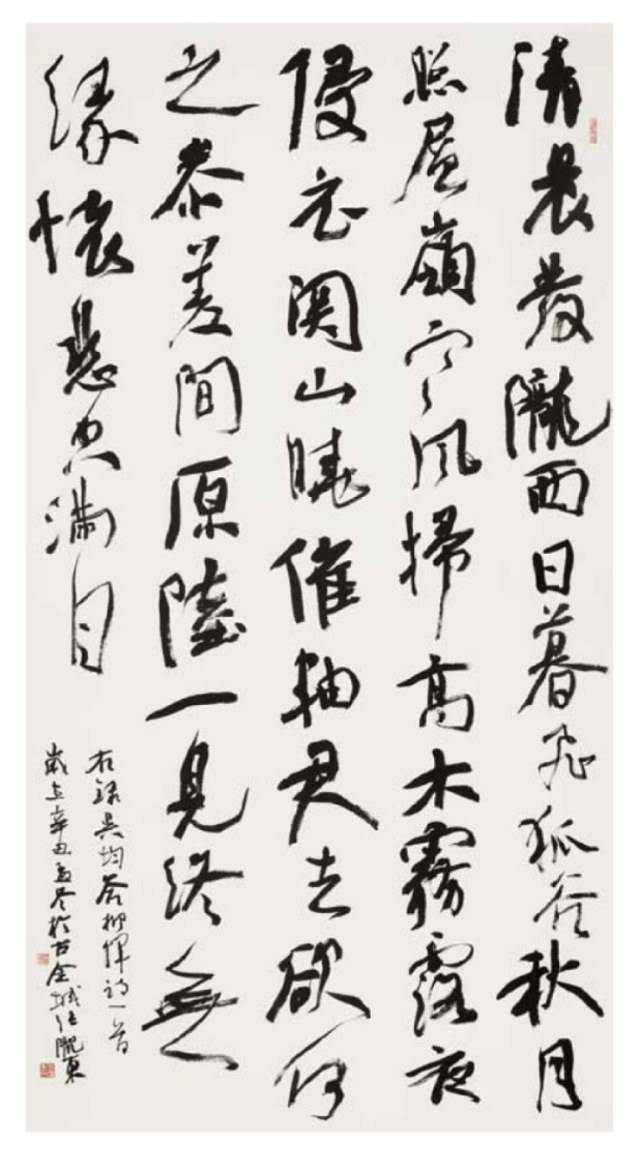 清晨發隴西日暮飛狐谷秋月
照層嶺寒風掃高木霧露夜
侵衣関山曉催軸君去欲何
之參差間原陸一見終無
緣懷悲空滿目
右録吳均答柳惲詩一首
歲在辛丑孟冬於古金城任隴東